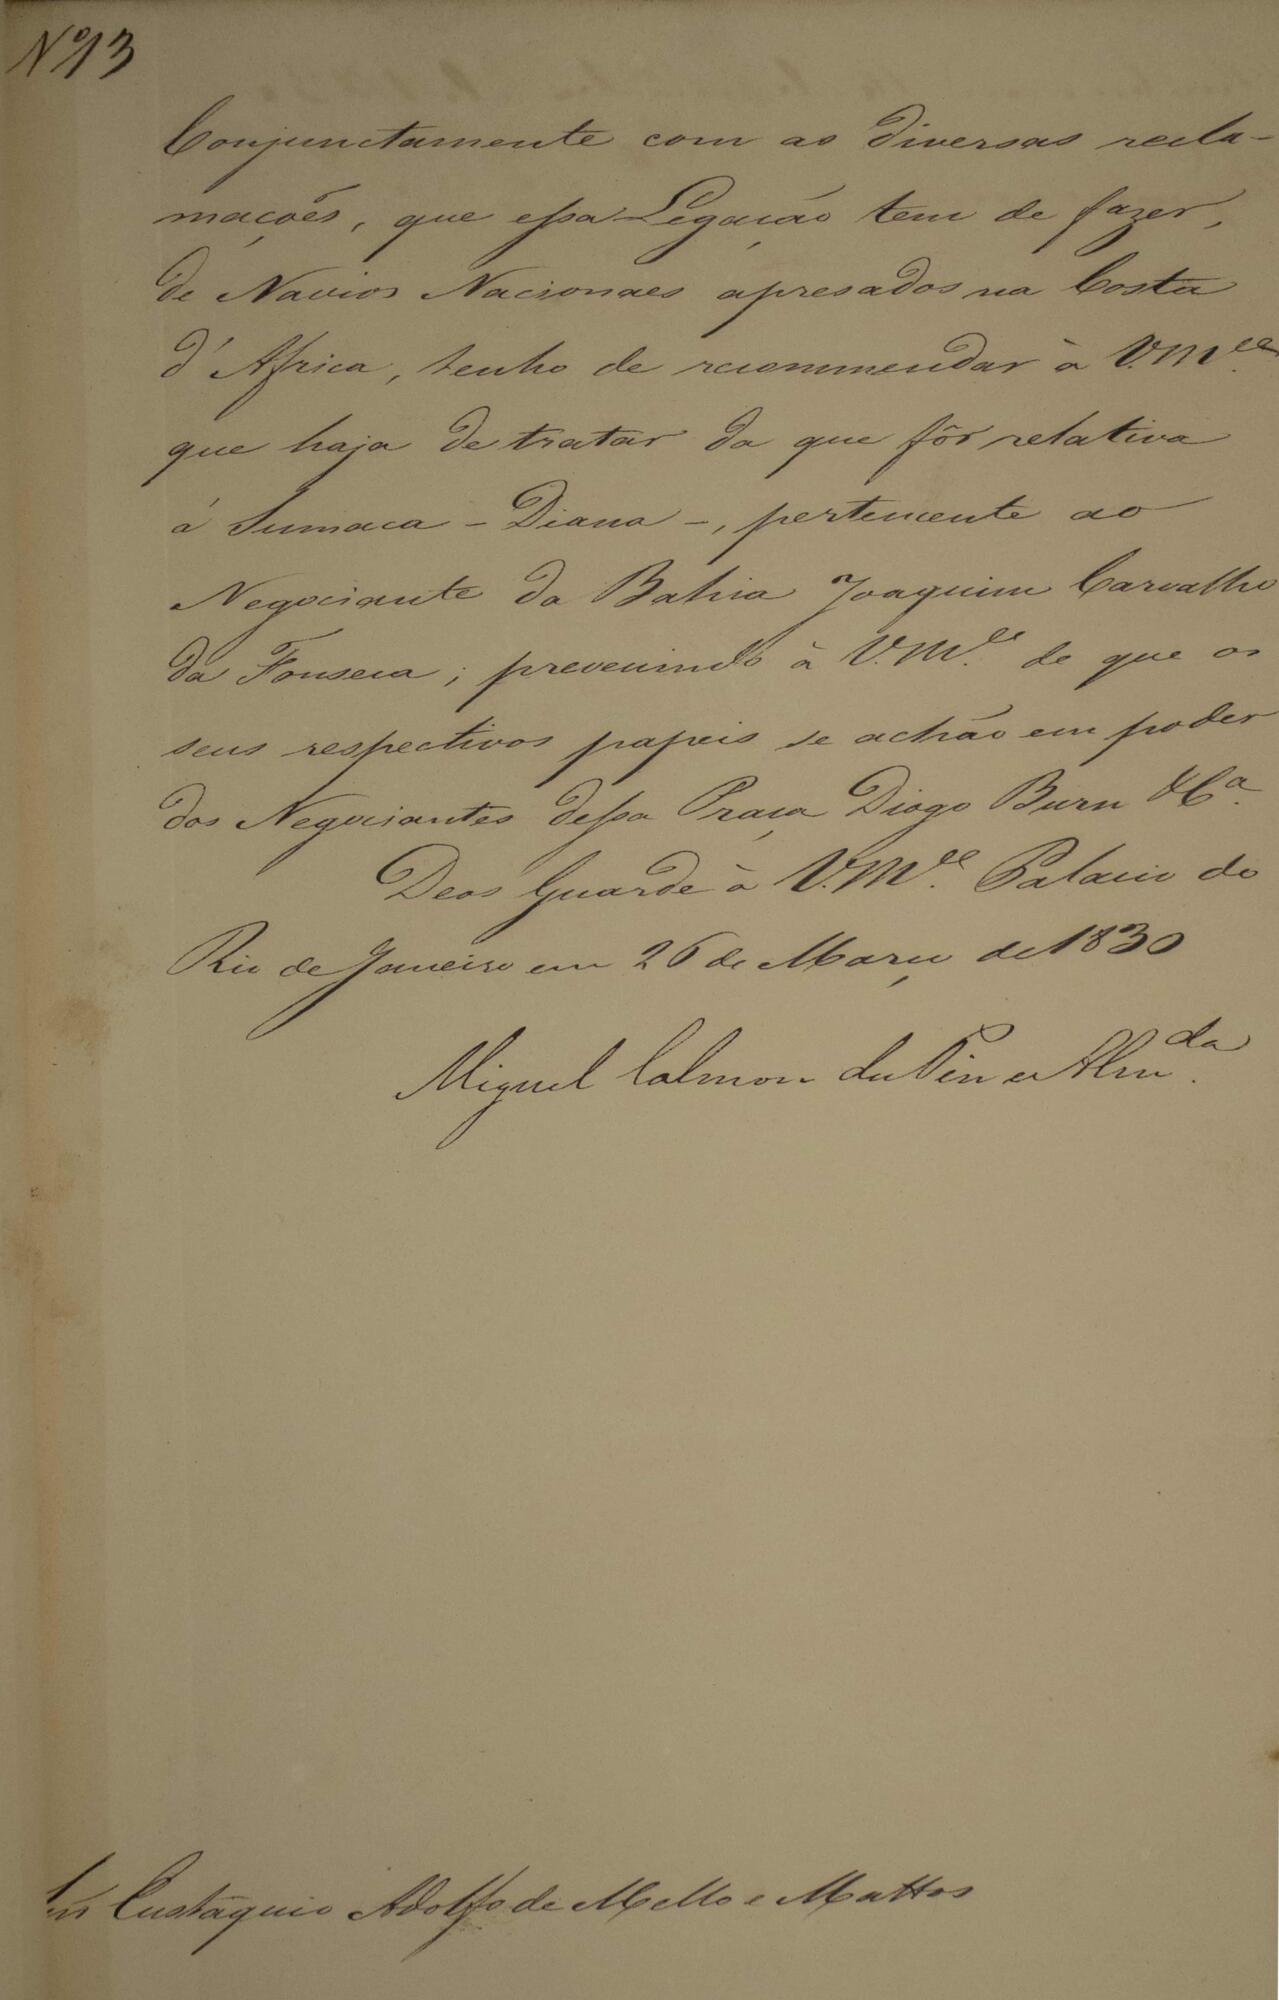 Nº 13
Conjunctamente com as diversas recla-
mações, que essa Legação tem de fazer,
de Navios Nacionaes apresados na Costa
d'Africa, tenho de recommendar à V.M.ce
que haja de tratar da que fôr relativa
á Sumaca - Diana -, pertencente ao
Negociante da Bahia Joaquim Carvalho
da Fonseca; prevenindo à V.M.ce de que os
seus respectivos papeis se achão em poder
dos Negociantes dessa Praça Diogo Burn & C.a
Deos Guarde à V.M.ce Palacio do
Rio de Janeiro em 26 de Março de 1830
Miguel Calmon du Pin e Alm.da
Eustaquio Adolfo de Mello e Mattos